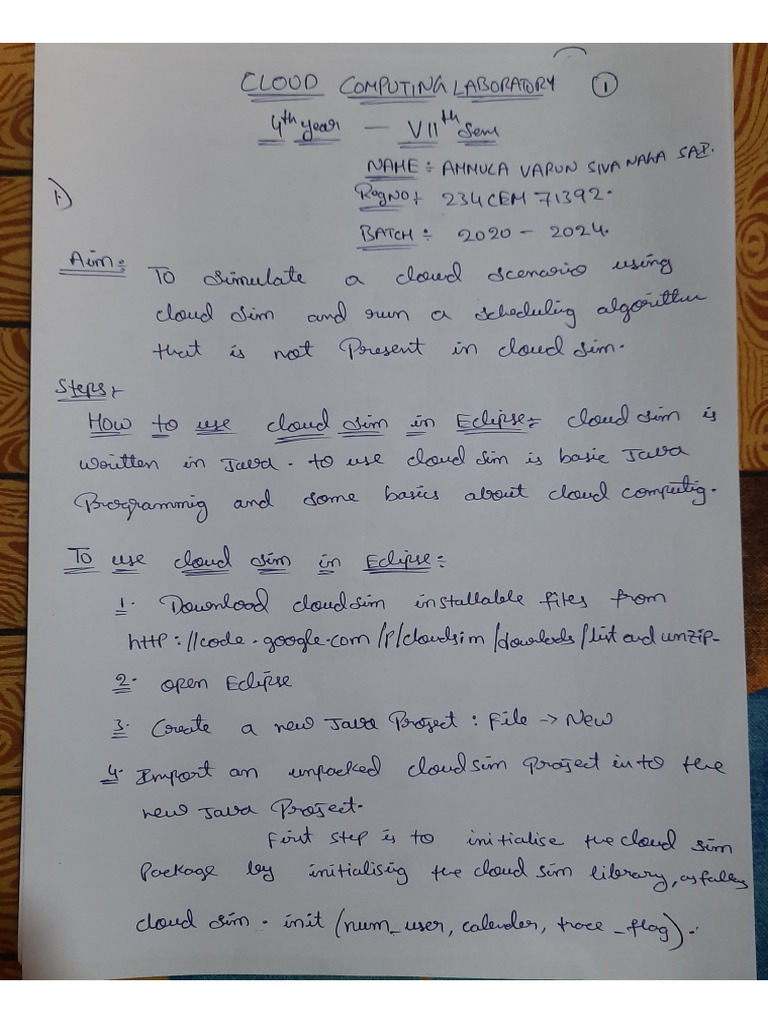 CLOUD COMPUTING LABORATORY 1
4th year - VIIth Sem
NAME :- AMMULA VARUN SIVA NAGA SAI.
1)
RegNO:- 234CEM71392.
BATCH :- 2020 - 2024.
Aim:- To simulate a cloud scenario using
cloud sim and run a scheduling algorithm
that is not Present in cloud sim.
Steps:-
How to use cloud sim in Eclipse:- cloud sim is
written in Java. to use cloud sim is basic Java
Programmig and some basics about cloud computig.
To use cloud sim in Eclipse:-
1. Download cloudsim installable files from
http://code.google.com/p/cloudsim/downloads/list and unzip-
2. open Eclipse
3. Create a new Java Project : File -> New
4. Import an unpacked cloudsim Project in to the
new Java Project.
First step is to initialise the cloud sim
Package by initialisig the cloud sim library, as
cloud sim . init (num_user, calender, trace_flag).